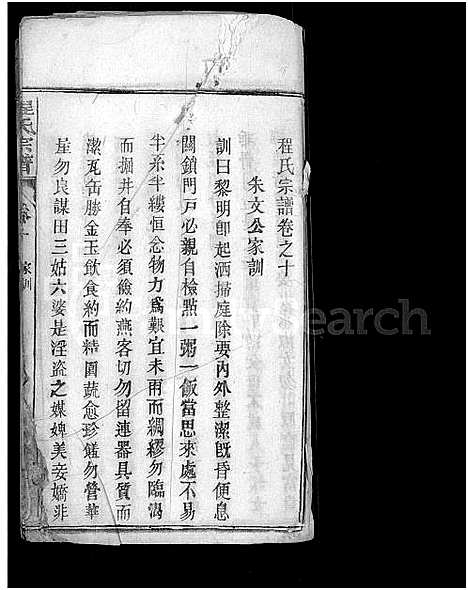 程氏宗譜卷之十
朱文公家訓
訓曰黎明卽起洒掃庭除要內外整潔旣昏便息
關鎖門戶必親自檢點一粥一飯當思來處不易
半糸半縷恒念物力爲艱宜未雨而綢繆勿臨渴
而掘井自奉必須儉約燕客切勿留連器具質而
潔瓦缶勝金玉飲食約而精園蔬愈珍饈勿營華
屋勿良謀田三姑六婆是淫盜之媒婢美妾嬌非
程氏宗譜
家訓